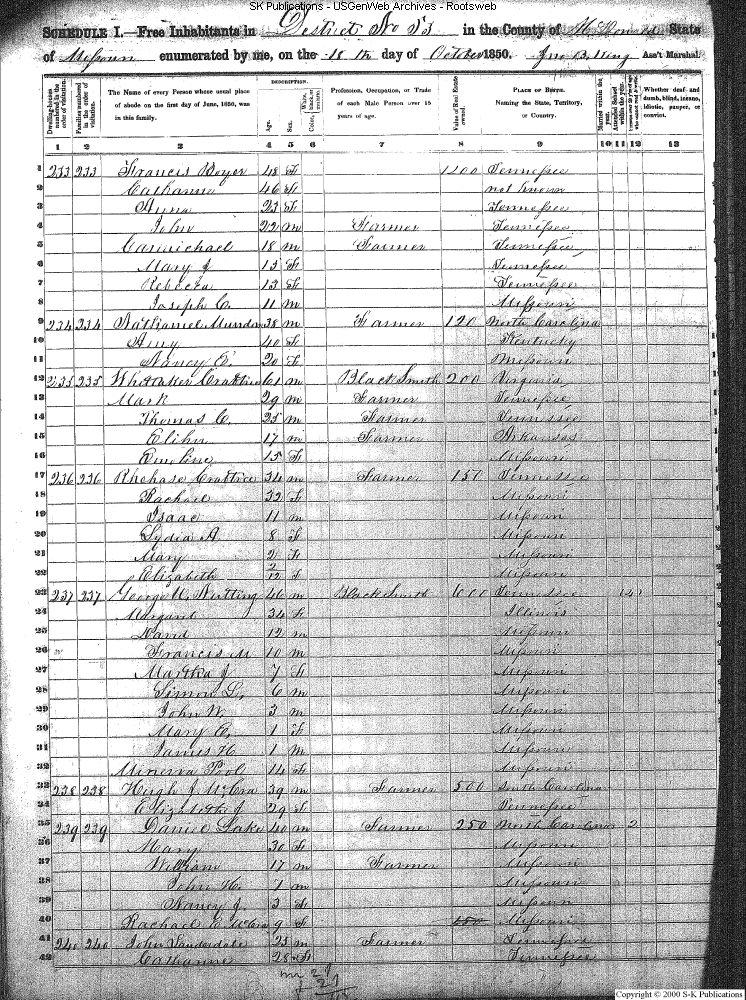 SK Publications - USGenWeb Archives - Rootsweb
SCHEDULE I.—Free Inhabitants in District No 53 in the County of McDonald State
of Missouri enumerated by me, on the 18th day of October 1850. Ass't Marshal.
DESCRIPTION.
Dwelling-houses numbered in the order of visitation. Families numbered in the order of visitation. The Name of every Person whose usual place of abode on the first day of June, 1850, was in this family. Age. Sex. Color, White, black, or mulatto. Profession, Occupation, or Trade of each Male Person over 15 years of age. Value of Real Estate owned. PLACE OF BIRTH. Naming the State, Territory, or Country. Married within the year. Attended School within the year. Whether deaf and dumb, blind, insane, idiotic, pauper, or convict.
1 2 3 4 5 6 7 8 9 10 11 12 13
1 233 233 Francis Boyer 48 F 1200 Tennessee
2 Catharine 46 F not known
3 Anna 23 F Tennessee
4 John 22 m Farmer Tennessee
5 Carmichael 18 m Farmer Tennessee
6 Mary J 15 F Tennessee
7 Rebecca 13 F Tennessee
8 Joseph C. 11 m Missouri
9 234 234 Nathaniel 38 m Farmer 120 North Carolina
10 Amy 40 F Kentucky
11 Nancy E. 20 F Missouri
12 235 235 Whittaker Crabtree 61 m Black Smith 200 Virginia
13 Mark 29 m Farmer Tennessee
14 Thomas C. 25 m Farmer Tennessee
15 Elihu 17 m Farmer Arkansas
16 Emeline 15 F Missouri
17 236 236 Crabtree 34 m Farmer 157 Tennessee
18 Rachael 32 F Missouri
19 Isaac 11 m Missouri
20 Lydia A 8 F Missouri
21 Mary 2 F Missouri
22 Elizabeth 2/12 F Missouri
23 237 237 George 46 m Black Smith 600 Tennessee
24 Margaret 34 F Illinois
25 David 12 m Missouri
26 Francis M 10 m Missouri
27 Martha J 7 F Missouri
28 Simon L. 6 m Missouri
29 John W. 3 m Missouri
30 Mary E. 1 F Missouri
31 James H 1 m Missouri
32 Minerva Pool 14 F Missouri
33 238 238 Hugh J McCra 39 m Farmer 500 South Carolina
34 Elizabeth J 29 F Tennessee
35 239 239 Daniel Lake 40 m Farmer 250 North Carolina 2
36 Mary 30 F Missouri
37 William 17 m Farmer Missouri
38 John H. 7 m Missouri
39 Nancy J. 3 F Missouri
40 Rachael E McCra 9 F Missouri
41 240 240 John Lauderdale 23 m Farmer Tennessee
42 Catharine 28 F Tennessee
Copyright © 2000 S-K Publications